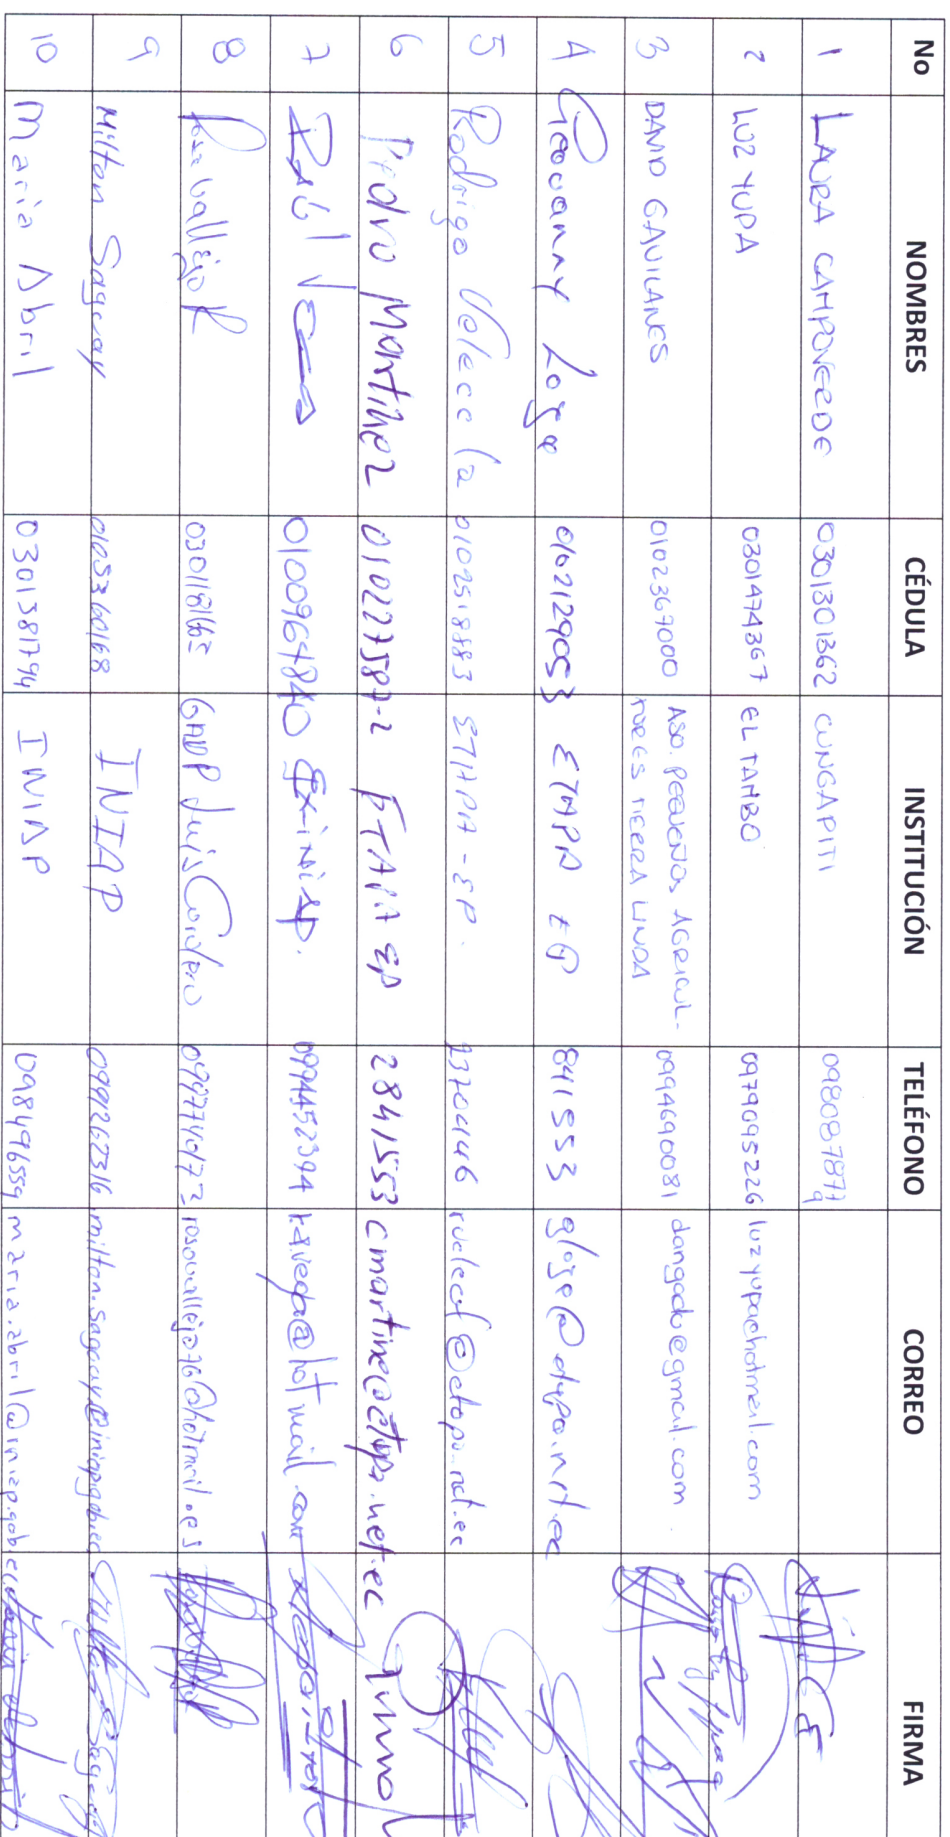 No NOMBRES CÉDULA INSTITUCIÓN TELÉFONO CORREO FIRMA
1 LAURA CAMPOVERDE 0301301362 CUNGAPITI
2 LUZ YUPA 0301474367 EL TAMBO 0979095226 luzyupa@hotmail.com
3 DAVID GAVILANES 0102369000 ASO. PEQUEÑOS AGRICUL-
TORES TIERRA LINDA 0994690081 dangado@gmail.com
4 Geovanny Loja 0102129053 ETAPA EP 841553
5 Rodrigo 0102518883 ETAPA-EP.
6 Pedro Martinez 010227587-2 ETAPA EP 2841553
7 Vega 0100964840 Ex-iniap. 0994452394 ravega@hotmail.com
8 Rosa Vallejo R 0301181662 GADP Luis Cordero rosavallejo76@hotmail.es
9 Milton Sagbay 0105360168 INIAP 0991262316
10 Maria Abril 0301381794 INIAP 0984965559 maria.abril@iniap.gob.ec